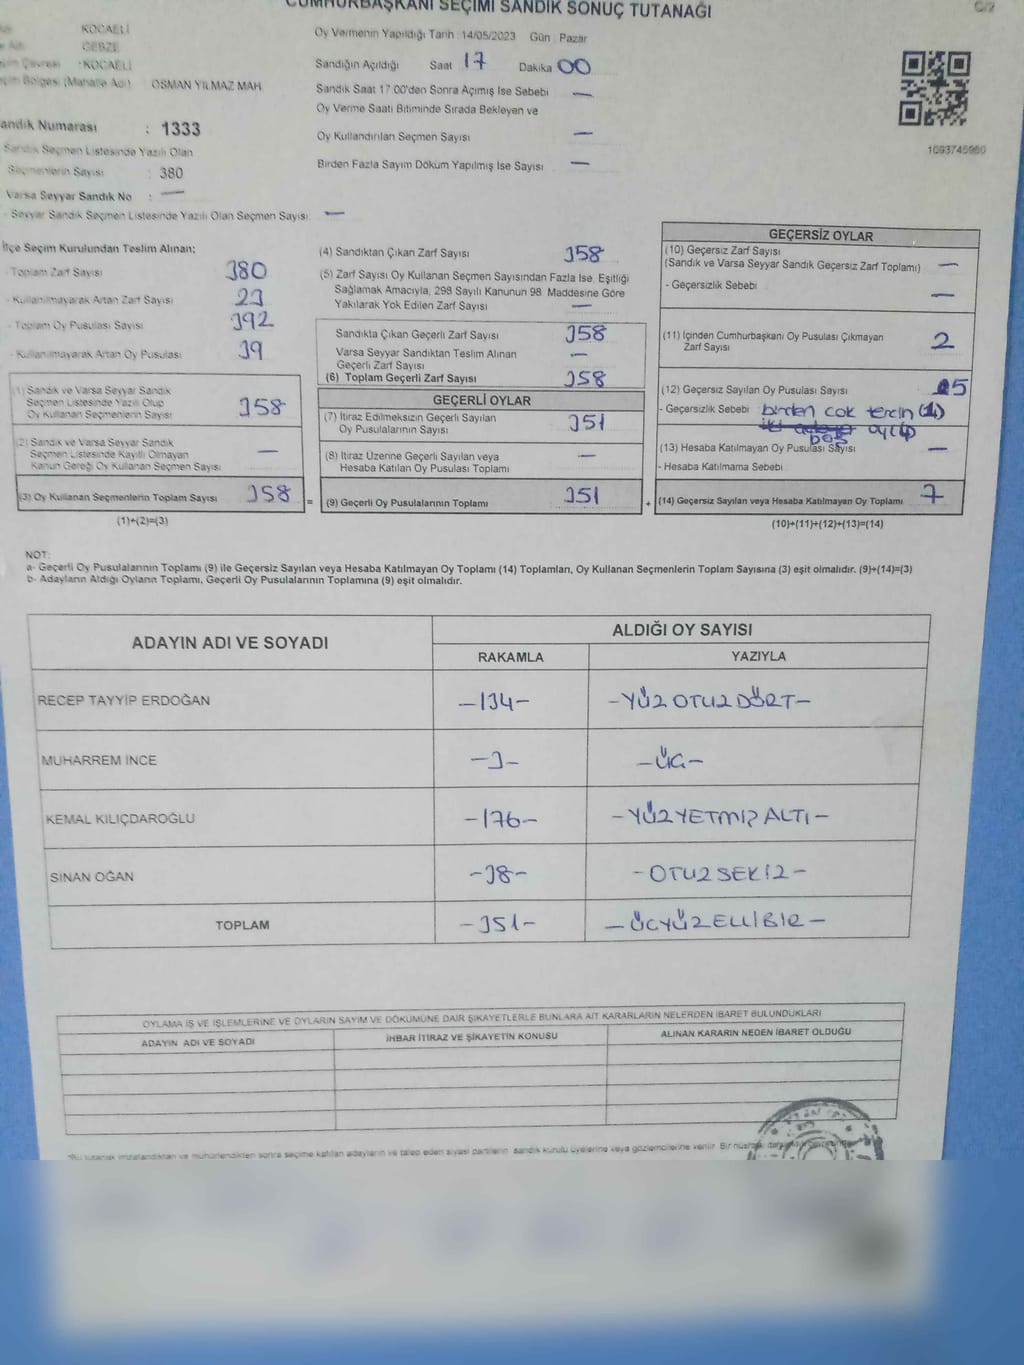 CUMHURBAŞKANI SEÇİMİ SANDIK SONUÇ TUTANAĞI
KOCAELİ
GEBZE
KOCAELİ
OSMAN YILMAZ MAH
Oy Vermenin Yapıldığı Tarih : 14/05/2023 Gün : Pazar
Sandığın Açıldığı Saat 17 Dakika 00
Sandık Saat 17:00'den Sonra Açımış İse Sebebi —
Oy Verme Saati Bitiminde Sırada Bekleyen ve
Oy Kullandırılan Seçmen Sayısı —
Birden Fazla Sayım Döküm Yapılmış İse Sayısı —
1093746960
Sandık Numarası : 1333
Sandık Seçmen Listesinde Yazılı Olan
Seçmenlerin Sayısı : 380
Varsa Seyyar Sandık No : —
- Seyyar Sandık Seçmen Listesinde Yazılı Olan Seçmen Sayısı: —
İlçe Seçim Kurulundan Teslim Alınan;
- Toplam Zarf Sayısı 380
- Kullanılmayarak Artan Zarf Sayısı
- Toplam Oy Pusulası Sayısı 392
- Kullanılmayarak Artan Oy Pusulası
(1) Sandık ve Varsa Seyyar Sandık
Seçmen Listesinde Yazılı Olup
Oy Kullanan Seçmenlerin Sayısı 358
(2) Sandık ve Varsa Seyyar Sandık
Seçmen Listesinde Kayıtlı Olmayan
Kanun Gereği Oy Kullanan Seçmen Sayısı —
(3) Oy Kullanan Seçmenlerin Toplam Sayısı 358 =
(1)+(2)=(3)
(4) Sandıktan Çıkan Zarf Sayısı 358
(5) Zarf Sayısı Oy Kullanan Seçmen Sayısından Fazla İse, Eşitliği
Sağlamak Amacıyla, 298 Sayılı Kanunun 98. Maddesine Göre
Yakılarak Yok Edilen Zarf Sayısı —
Sandıkta Çıkan Geçerli Zarf Sayısı 358
Varsa Seyyar Sandıktan Teslim Alınan
Geçerli Zarf Sayısı —
(6) Toplam Geçerli Zarf Sayısı 358
GEÇERLİ OYLAR
(7) İtiraz Edilmeksizin Geçerli Sayılan
Oy Pusulalarının Sayısı 351
(8) İtiraz Üzerine Geçerli Sayılan veya
Hesaba Katılan Oy Pusulası Toplamı —
(9) Geçerli Oy Pusulalarının Toplamı 351 +
GEÇERSİZ OYLAR
(10) Geçersiz Zarf Sayısı
(Sandık ve Varsa Seyyar Sandık Geçersiz Zarf Toplamı) —
- Geçersizlik Sebebi —
(11) İçinden Cumhurbaşkanı Oy Pusulası Çıkmayan
Zarf Sayısı 2
(12) Geçersiz Sayılan Oy Pusulası Sayısı 5
- Geçersizlik Sebebi birden çok tercih
boş oy
(13) Hesaba Katılmayan Oy Pusulası Sayısı —
- Hesaba Katılmama Sebebi
(14) Geçersiz Sayılan veya Hesaba Katılmayan Oy Toplamı 7
(10)+(11)+(12)+(13)=(14)
NOT:
a- Geçerli Oy Pusulalarının Toplamı (9) ile Geçersiz Sayılan veya Hesaba Katılmayan Oy Toplamı (14) Toplamları, Oy Kullanan Seçmenlerin Toplam Sayısına (3) eşit olmalıdır. (9)+(14)=(3)
b- Adayların Aldığı Oyların Toplamı, Geçerli Oy Pusulalarının Toplamına (9) eşit olmalıdır.
ADAYIN ADI VE SOYADI ALDIĞI OY SAYISI
RAKAMLA YAZIYLA
RECEP TAYYİP ERDOĞAN -134- -YÜZ OTUZ DÖRT-
MUHARREM İNCE -3- -ÜÇ-
KEMAL KILIÇDAROĞLU -176- -YÜZ YETMİŞ ALTI-
SİNAN OĞAN -38- -OTUZ SEKİZ-
TOPLAM -351- -ÜÇYÜZ ELLİ BİR-
OYLAMA İŞ VE İŞLEMLERİNE VE OYLARIN SAYIM VE DÖKÜMÜNE DAİR ŞİKAYETLERLE BUNLARA AİT KARARLARIN NELERDEN İBARET BULUNDUKLARI
ADAYIN ADI VE SOYADI İHBAR İTİRAZ VE ŞİKAYETİN KONUSU ALINAN KARARIN NEDEN İBARET OLDUĞU
*Bu tutanak imzalandıktan ve mühürlendikten sonra seçime katılan adayların ve talep eden siyasi partilerin sandık kurulu üyelerine veya gözlemcilerine verilir. Bir nüsha